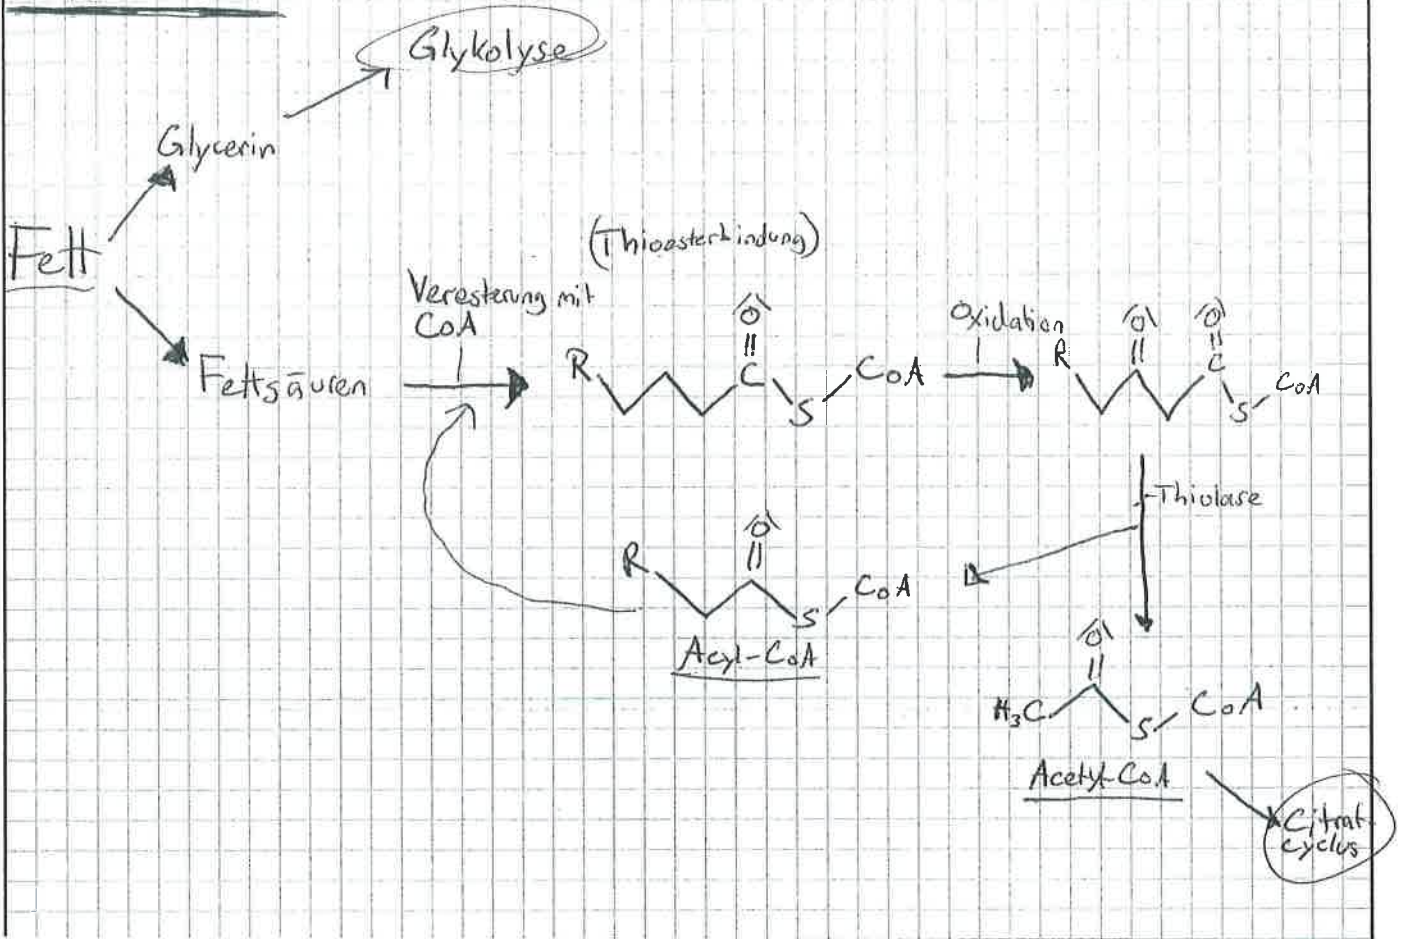 Glykolyse
Glycerin
Fett
(Thioesterbindung)
Veresterung mit
CoA
Fettsäuren
R
O
C
S
CoA
Oxidation
R
O
O
C
S
CoA
Thiolase
R
O
S
CoA
Acyl-CoA
O
H₃C
S
CoA
Acetyl-CoA
Citrat
cyclus